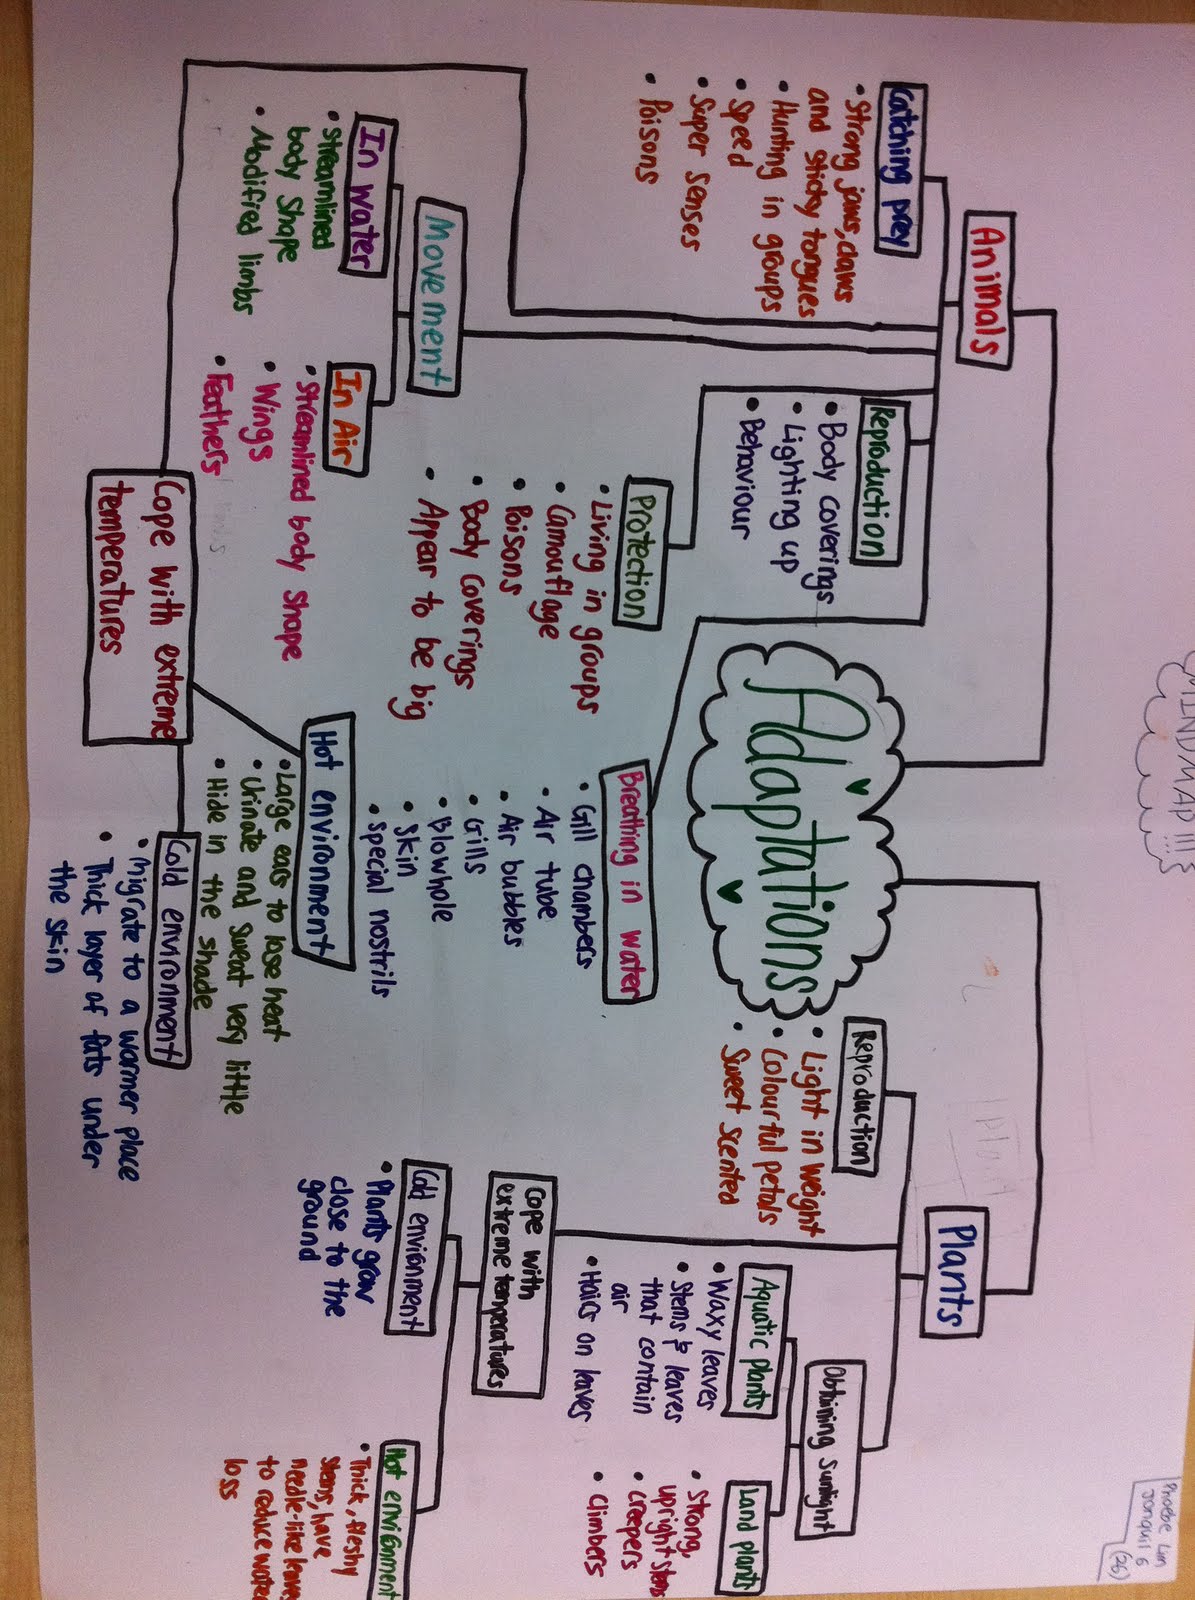 MINDMAP!!!!
Phoebe Lim
Jonquil 6
(26)
Adaptations
Animals
Catching prey
• Strong jaws, claws
and sticky tongues
• Hunting in groups
• Speed
• Super senses
• Poisons
Reproduction
• Body coverings
• Lighting up
• Behaviour
Movement
In water
• streamlined
body shape
• Modified limbs
In Air
• Streamlined body shape
• Wings
• Feathers
Protection
• Living in groups
• Camouflage
• Poisons
• Body coverings
• Appear to be big
Breathing in water
• Gill chambers
• Air tube
• Air bubbles
• Gills
• Blowhole
• Skin
• special nostrils
Cope with extreme
temperatures
Hot environment
• Large ears to lose heat
• Urinate and sweat very little
• Hide in the shade
Cold environment
• Migrate to a warmer place
• Thick layer of fats under
the skin
Plants
Reproduction
• Light in weight
• Colourful petals
• Sweet scented
Obtaining sunlight
Aquatic plants
• Waxy leaves
• Stems & leaves
that contain
air
• Hairs on leaves
Land plants
• Strong,
upright stems
• Creepers
• Climbers
Cope with
extreme temperatures
Cold environment
• Plants grow
close to the
ground
Hot environment
• Thick, fleshy
stems, have
needle-like leaves
to reduce water
loss